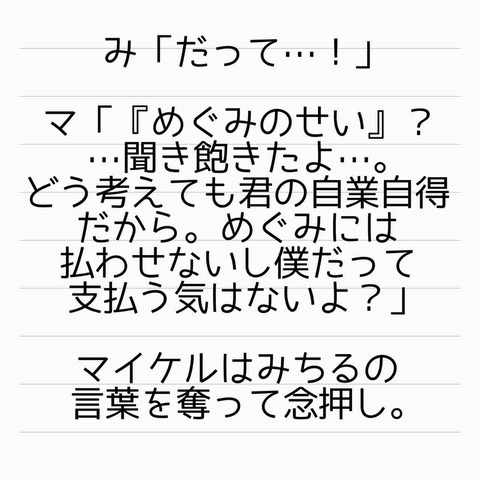 み「だって…！」
マ「『めぐみのせい』？
…聞き飽きたよ…。
どう考えても君の自業自得
だから。めぐみには
払わせないし僕だって
支払う気はないよ？」
マイケルはみちるの
言葉を奪って念押し。